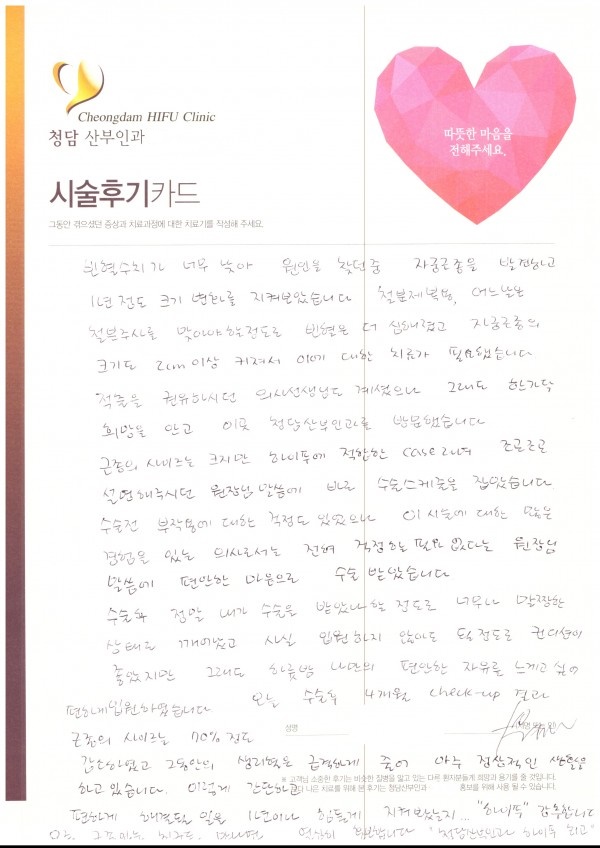 Cheongdam HIFU Clinic
청담 산부인과
따뜻한 마음을
전해주세요.
시술후기카드
그동안 겪으셨던 증상과 치료과정에 대한 치료기를 작성해 주세요.
빈혈수치가 너무 낮아 원인을 찾던중 자궁근종을 발견하고
1년 전도 크기 변화를 지켜보았습니다 철분제복용, 어느날은
철분주사를 맞아야 할정도로 빈혈은 더 심해졌고 자궁근종의
크기도 2cm이상 커져서 이에 대한 치료가 필요했습니다
적출을 권유하시던 의사선생님도 계셨으나 그래도 한가닥
희망을 안고 이곳 청담산부인과를 방문했습니다
근종의 사이즈는 크지만 하이푸에 적합한 case라며 조근조근
설명해주시던 원장님 말씀에 바로 수술스케줄을 잡았습니다
수술전 부작용에 대한 걱정도 있었으나 이 시술에 대한 많은
경험을 있는 의사로서는 전혀 걱정할 필요 없다는 원장님
말씀에 편안한 마음으로 수술 받았습니다
수술후 정말 내가 수술을 받았나 할 정도로 너무나 말짱한
상태로 깨어났고 사실 입원하지 않아도 될 정도로 컨디션이
좋았지만 그래도 하룻밤 나만의 편안한 자유를 느끼고 싶어
편하게 입원하였습니다 오늘 수술후 4개월 check-up 결과
성명
근종의 사이즈는 70% 정도
감소하였고 그동안의 생리혈은 급격하게 줄어 아주 정상적인 생활을
※ 고객님 소중한 후기는 비슷한 질병을 앓고 있는 다른 환자분들께 희망과 용기를 줄 것입니다.
하고 있습니다. 이렇게 간단하고
보다 나은 치료를 위해 본 후기는 청담산부인과 홍보를 위해 사용 될 수 있습니다.
편하게 해결될 일을 1년이나 힘들게 지켜봤는지... "하이푸" 강추합니다
"청담산부인과 하이푸 최고"